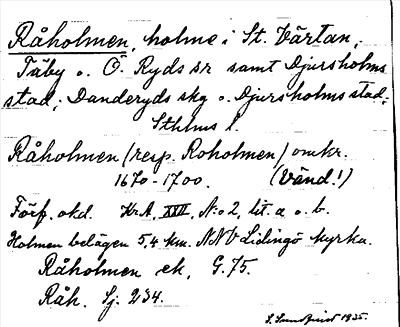 Råholmen, holme i St. Värtan,
Täby o. Ö. Ryds sr samt Djursholms
stad; Danderyds skg o. Djursholms stad;
Sthlms l.
Råholmen (resp. Roholmen) omkr.
1670-1700. (Vänd!)
Förf. okd. Kr.A. XXII, N:o 2, lit. a o. b.
Holmen belägen 5,4 km. NNV Lidingö kyrka.
Råholmen ek. G. 75.
Råh. Sj. 234.
S. Sundqvist 1935.